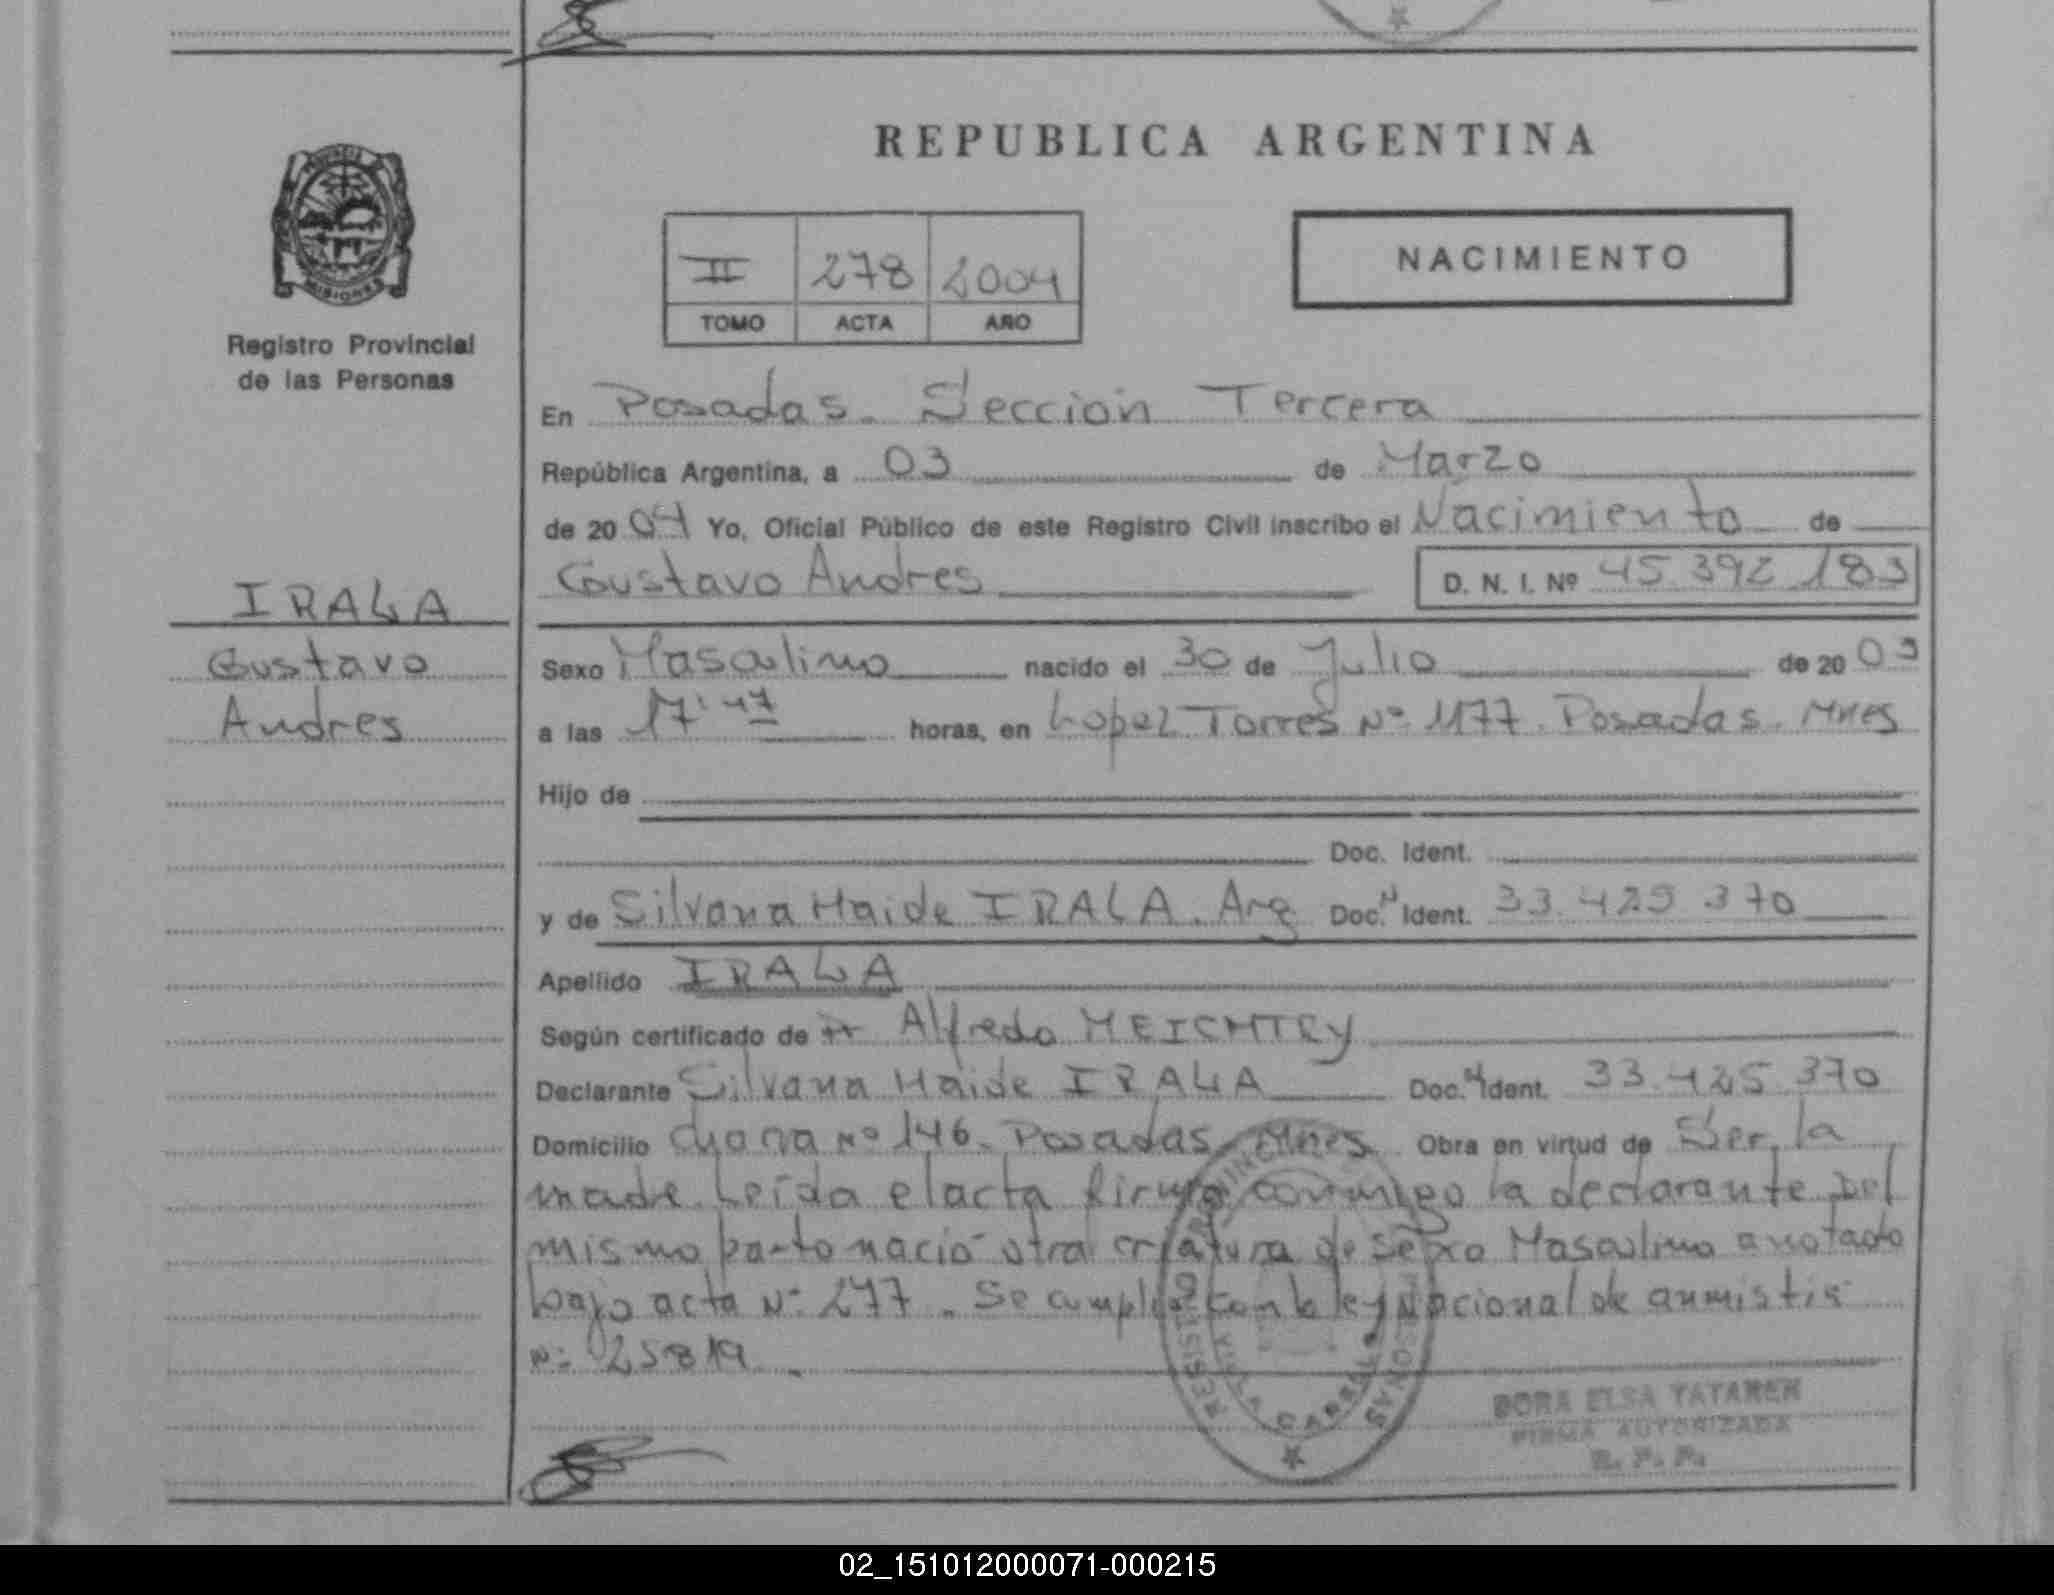 REPUBLICA ARGENTINA
PROVINCIA DE MISIONES
Registro Provincial
de las Personas
II 278 2004
TOMO ACTA AÑO
NACIMIENTO
En Posadas. Sección Tercera
República Argentina, a 03 de Marzo
de 2004 Yo, Oficial Público de este Registro Civil inscribo el Nacimiento de
Gustavo Andres D. N. I. Nº 45.392 183
IRALA
Gustavo
Andres
Sexo Masculino nacido el 30 de Julio de 2003
a las 17:47 horas, en Lopez Torres Nº 1177. Posadas. Mnes
Hijo de
Doc. Ident.
y de Silvana Haide IRALA. Arg Doc. Ident. 33.425 370
Apellido IRALA
Según certificado de Dr Alfredo
Declarante Silvana Haide IRALA Doc. Ident. 33.425 370
Domicilio Chacra Nº 146. Posadas. Mnes. Obra en virtud de Ser la
madre. Leída el acta firma conmigo la declarante Del
mismo parto nació otra criatura de sexo Masculino anotado
bajo acta Nº 277. Se cumple con la ley Nacional de anmistia
Nº 25819.
REGISTRO PROVINCIAL PERSONAS
VILLA CABELLO
DORA ELSA TATAREN
FIRMA AUTORIZADA
R. P. P.
02_151012000071-000215